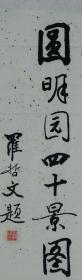 圆明园四十景图
罗哲文题